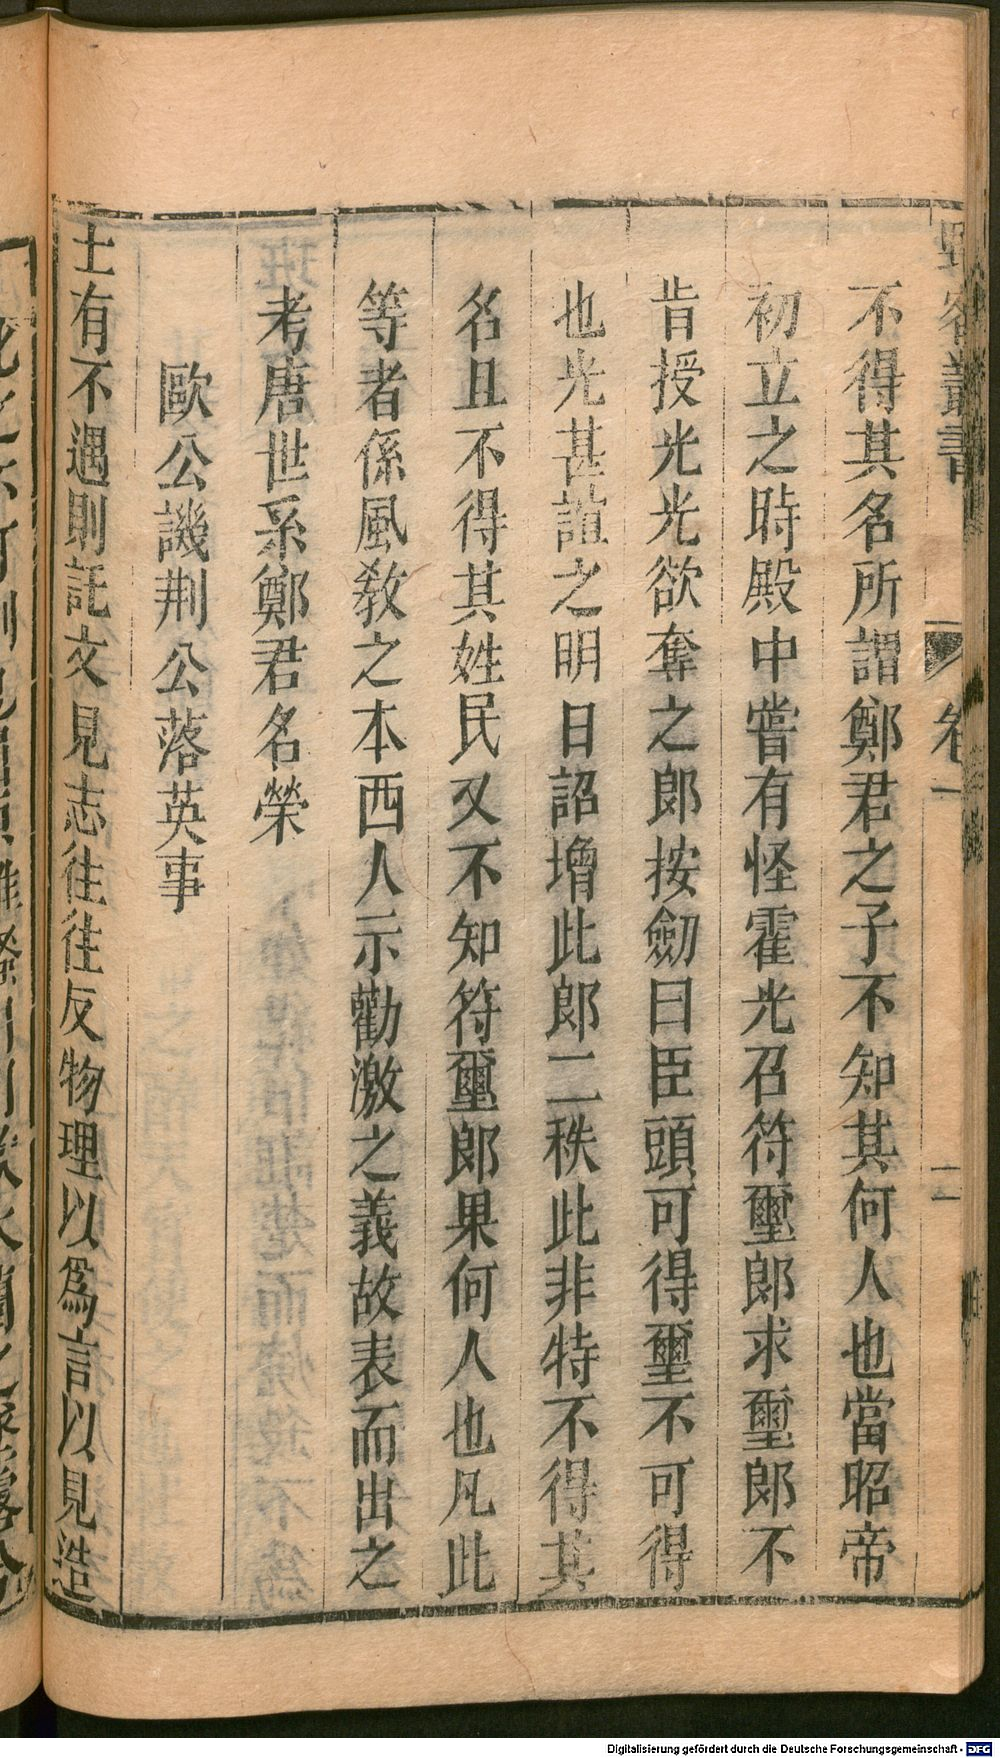 野客叢書 卷一 二
不得其名所謂鄭君之子不知其何人也當昭帝
初立之時殿中嘗有怪霍光召符璽郎求璽郎不
肯授光光欲奪之郎按劒曰臣頭可得璽不可得
也光甚誼之明日詔增此郎二秩此非特不得其
名且不得其姓民又不知符璽郎果何人也凡此
等者係風教之本西人示勸激之義故表而出之
考唐世系鄭君名榮
歐公譏荆公落英事
士有不遇則託文見志往往反物理以爲言以見造
Digitalisierung gefördert durch die Deutsche Forschungsgemeinschaft - DFG